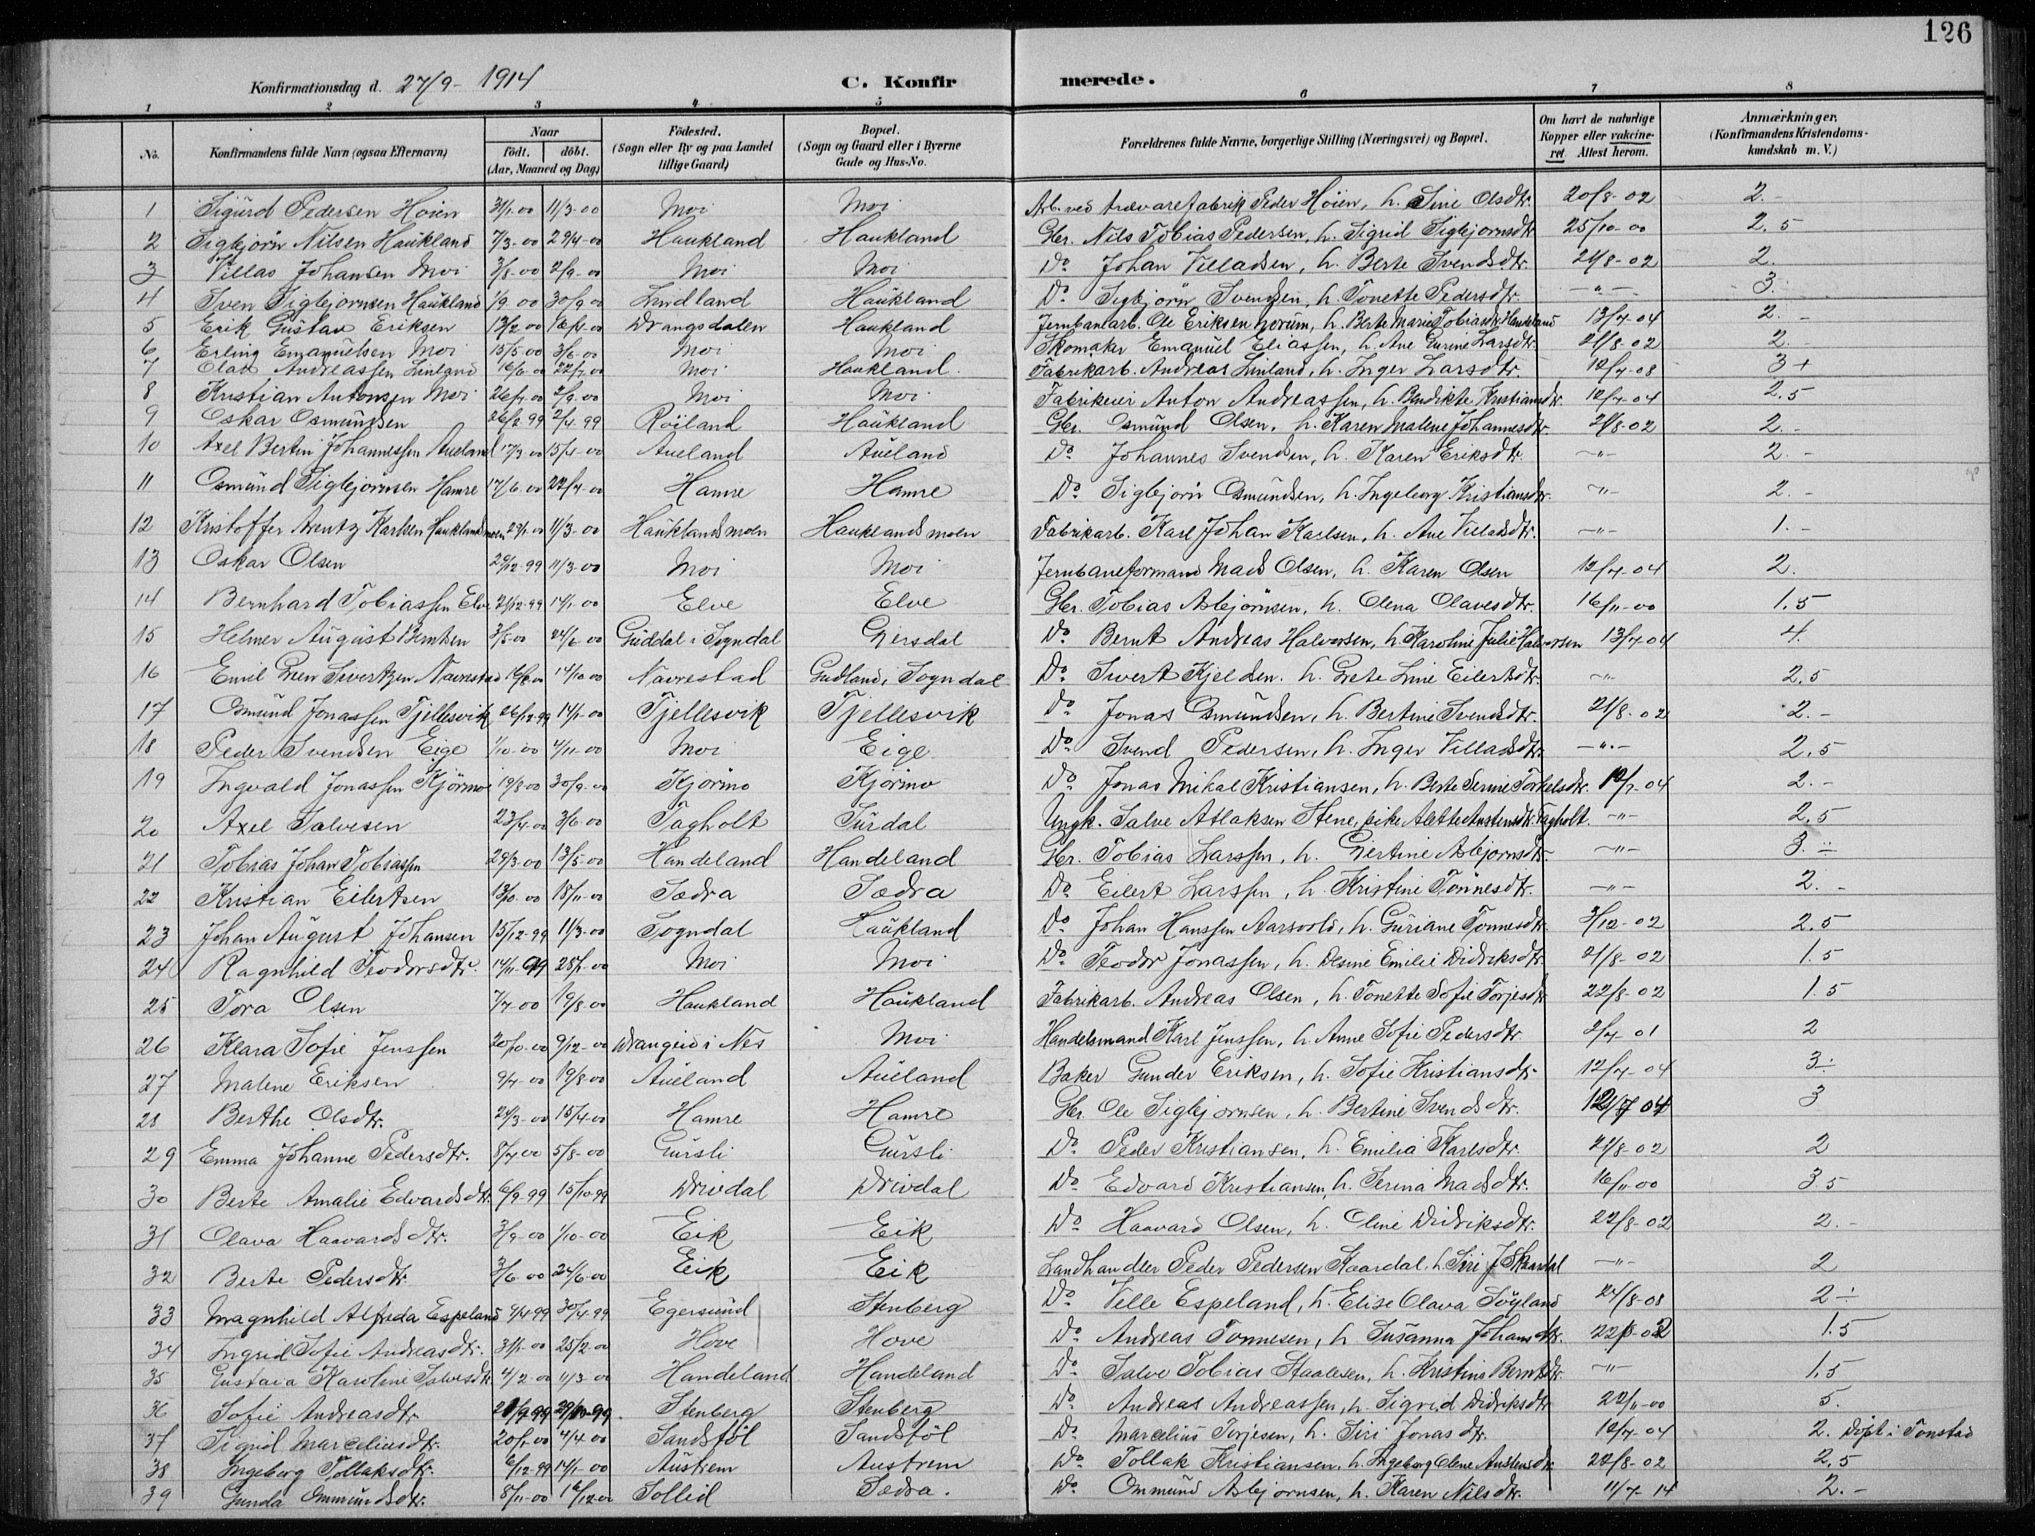 126
Konfirmationsdag d. 27/9- 1914 C. Konfirmerede.
1 2 3 4 5 6 7 8
No. Konfirmandens fulde Navn (ogsaa Efternavn) Naar født. døbt. (Aar, Maaned og Dag) Födested. (Sogn eller By og paa Landet tillige Gaard) Bopæl. (Sogn og Gaard eller i Byerne Gade og Hus-No. Forældrenes fulde Navne, borgerlige Stilling (Næringsvei) og Bopæl. Om havt de naturlige Kopper eller vakcineret. Attest herom. Anmærkninger. (Konfirmandens Kristendomskundskab m. V.)
1 Sigurd Pedersen Høien 31/1-00 11/3-00 Moi Moi Arb. ved trævarefabrik Peder Höien, h. Sine Olsdtr. 20/8-02 2.-
2 Sigbjørn Nilsen Haukland 7/3-00 29/4-00 Haukland Haukland Gbr. Nils Tobias Pedersen, h. Sigrid Sigbjørnsdtr 25/10-00 2,5
3 Villas Johansen Moi 3/8-00 2/9-00 Moi Moi Do Johan Villadsen, h. Berte Svendsdtr. 21/8-02 2.
4 Sven Sigbjørnsen Haukland 1/9 00 30/9 00 Lindland Haukland Do Sigbjörn Svendsen, h. Tonette Pedersdtr. -"- 3.
5 Erik Gustav Eriksen 13/2 00 Drangsdalen Haukland Jernbanearb. Ole Eriksen, h. Berte Marie Tobiasdtr. Haukland 13/7-04 2.-
6 Erling Emanuelsen Moi 15/5 00 3/6-00 Moi Moi Skomaker Emanuel Eliassen, h. Ane Gurine Larsdtr. 21/8-02 2.-
7 Olav Andreassen Linland 16/6-00 22/7-00 Moi Haukland. Fabrikarb. Andreas Linland, h. Inger Larsdtr. 12/7-08 3+
8 Kristian Antonsen Moi 26/7-00 2/9-00 Moi Moi Fabrikeier Anton Andreassen, h. Bendikte Kristiansdtr 12/7-04 2,5
9 Oskar Osmundsen 26/2 99 2/4-99 Röiland Haukland Gbr. Osmund Olsen, h. Karen Malene Johannesdtr. 21/8-02 2.-
10 Axel Bertin Johannessen Aueland 17/3 00 15/4-00 Aueland Aueland Do Johannes Svendsen, h. Karen Eriksdtr. -"- 2.-
11 Osmund Sigbjørnsen Hamre 17/6-00 22/7-00 Hamre Hamre Do Sigbjörn Osmundsen, h. Ingeborg Kristiansdtr. -"- 2.-
12 Kristoffer Arentz Karlsen Hauklandsmoen 29/1-00 11/3-00 Hauklandsmoen Hauklandsmoen Fabrikarb. Karl Johan Karlsen, h. Ane Villadsdtr. -"- 1.-
13 Oskar Olsen 29/12-99 11/3-00 Moi Moi Jernbaneformand Mads Olsen, h. Karen Olsen 12/7-04 2.
14 Bernhard Tobiassen Elve 21/12-99 14/1-00 Elve Elve Gbr. Tobias Asbjørnsen, h. Olena Olavesdtr. 16/11-00 1,5
15 Helmer August Berntsen 3/5-00 24/6-00 Guddal i Sogndal Gjersdal Do Bernt Andreas Halvorsen, h. Karoline Julie Halvorsen 13/7-04 4.
16 Emil Sivertsen Navrestad 14/10 00 Navrestad Gudland i Sogndal Do Sivert Kjelden. h. Grete Line Eilertsdtr. -"- 2,5
17 Osmund Jonassen Tjellesvik 26/12-99 14/1-00 Tjellesvik Tjellesvik Do Jonas Osmundsen, h. Bertine Svendsdtr. 21/8-02 2.-
18 Peder Svendsen Eige 1/10-00 4/11-00 Moi Eige Do Svend Pedersen, h. Inger Villadsdtr. -"- 2,5
19 Ingvald Jonassen Kjørmo 19/8-00 30/9-00 Kjörmo Kjörmo Do Jonas Mikal Kristiansen, h. Berte Serine Torkelsdtr. 12/7-04 2.-
20 Axel Salvesen 23/4-00 3/6-00 Fagholt Surdal Ungk. Salve Atlaksen Stene, pike Alette Austensdtr. Fagholt. -"- 2,5
21 Tobias Johan Tobiassen 29/3-00 13/5-00 Handeland Handeland Gbr. Tobias Larssen, h. Gertine Asbjørnsdtr. -"- 3.
22 Kristian Eilertsen 18/11-00 Sædra Sædra Do Eilert Larssen, h. Kristine Tönnesdtr. -"- 2.-
23 Johan August Johansen 15/12-99 11/3-00 Sogndal Haukland Do Johan Hanssen Aarsvold, h. Guriane Tönnesdtr. 3/12-02 2,5
24 Ragnhild Teodorsdtr. 14/11-99 28/1-00 Moi Moi Do Teodor Jonassen, h. Desine Emilie Didriksdtr. 21/8-02 1.5
25 Tora Olsen 7/7-00 19/8-00 Haukland Haukland Fabrikarb. Andreas Olsen, h. Tonette Sofie Torjesdtr. 22/8-02 1.5
26 Klara Sofie Jenssen 20/10-00 9/12-00 Drangeid i Nes Moi Handelsmand Karl Jenssen, h. Anne Sofie Pedersdtr. 2/7 01 2
27 Malene Eriksen 9/7-00 19/8-00 Aueland Aueland Baker Gunder Eriksen, h. Sofie Kristiansdtr. 12/7-04 3
28 Berthe Olsdtr. 24/3-00 15/4-00 Hamre Hamre Gbr. Ole Sigbjørnsen, h. Bertine Svendsdtr. 12/7 04 3
29 Emma Johanne Pedersdtr. 8/7 00 5/8-00 Gursli Gursli Do Peder Kristiansen, h. Emilia Karlsdtr. 21/8-02 2
30 Berte Amalie Edvardsdtr. 6/9-99 15/10-99 Drivdal Drivdal Do Edvard Kristiansen, h. Serina Madsdtr. 16/11 00 3.5
31 Olava Haavardsdtr. 3/9-00 1/10-00 Eik Eik Do Haavard Olsen, h. Oline Didriksdtr. 22/8-02 2.-
32 Berte Pedersdtr 3/6-00 24/6-00 Eik Eik Landhandler Peder Pedersen Skaardal. h. Siri J. Skaardal -"- 2
33 Magnhild Alfreda Espeland 30/4-99 Egersund Stenberg Do Velle Espeland, h. Elise Olava Søyland 24/8-08 2
34 Ingrid Sofie Andreasdtr. 31/1-00 25/2-00 Hove Hove Do Andreas Tonnesen, h. Susanna Johansdtr. 22/8-02 1.5
35 Gustava Karoline Salvesdtr 4/2-00 11/3-00 Handeland Handeland Do Salve Tobias Staalesen, h. Kristina Berntsdtr. -"- 1,5
36 Sofie Andreasdtr. 29/10-99 Stenberg Stenberg Do Andreas Andreassen, h. Sigrid Didriksdtr 22/11-00 5.
37 Sigrid Marceliusdtr. 20/1-00 4/4 00 Sandstöl Sandstöl Do Marcelius Torjesen, h. Siri Jonasdtr. 12/7-04 2. Döpt i Tonstad
38 Ingeborg Tollaksdtr. 6/12-99 14/1-00 Austrem Austrem Do Tollak Kristiansen, h. Ingeborg Olene Austensdtr 22/8-02 2,5
39 Gunda Ommundsdtr. 5/11-00 16/12 00 Sollid Sædra. Do Ommund Asbjørnsen, h. Karen Nilsdtr. 11/7-14 2.-